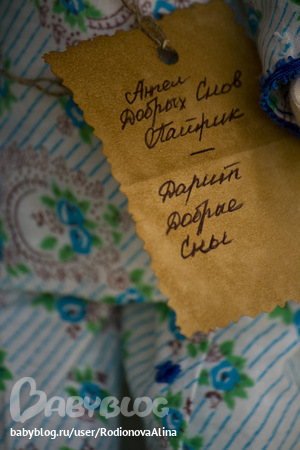 Ангел
Добрых Снов
Патрик
—
Дарит
Добрые
Сны
BABYBLOG
babyblog.ru/user/RodionovaAlina